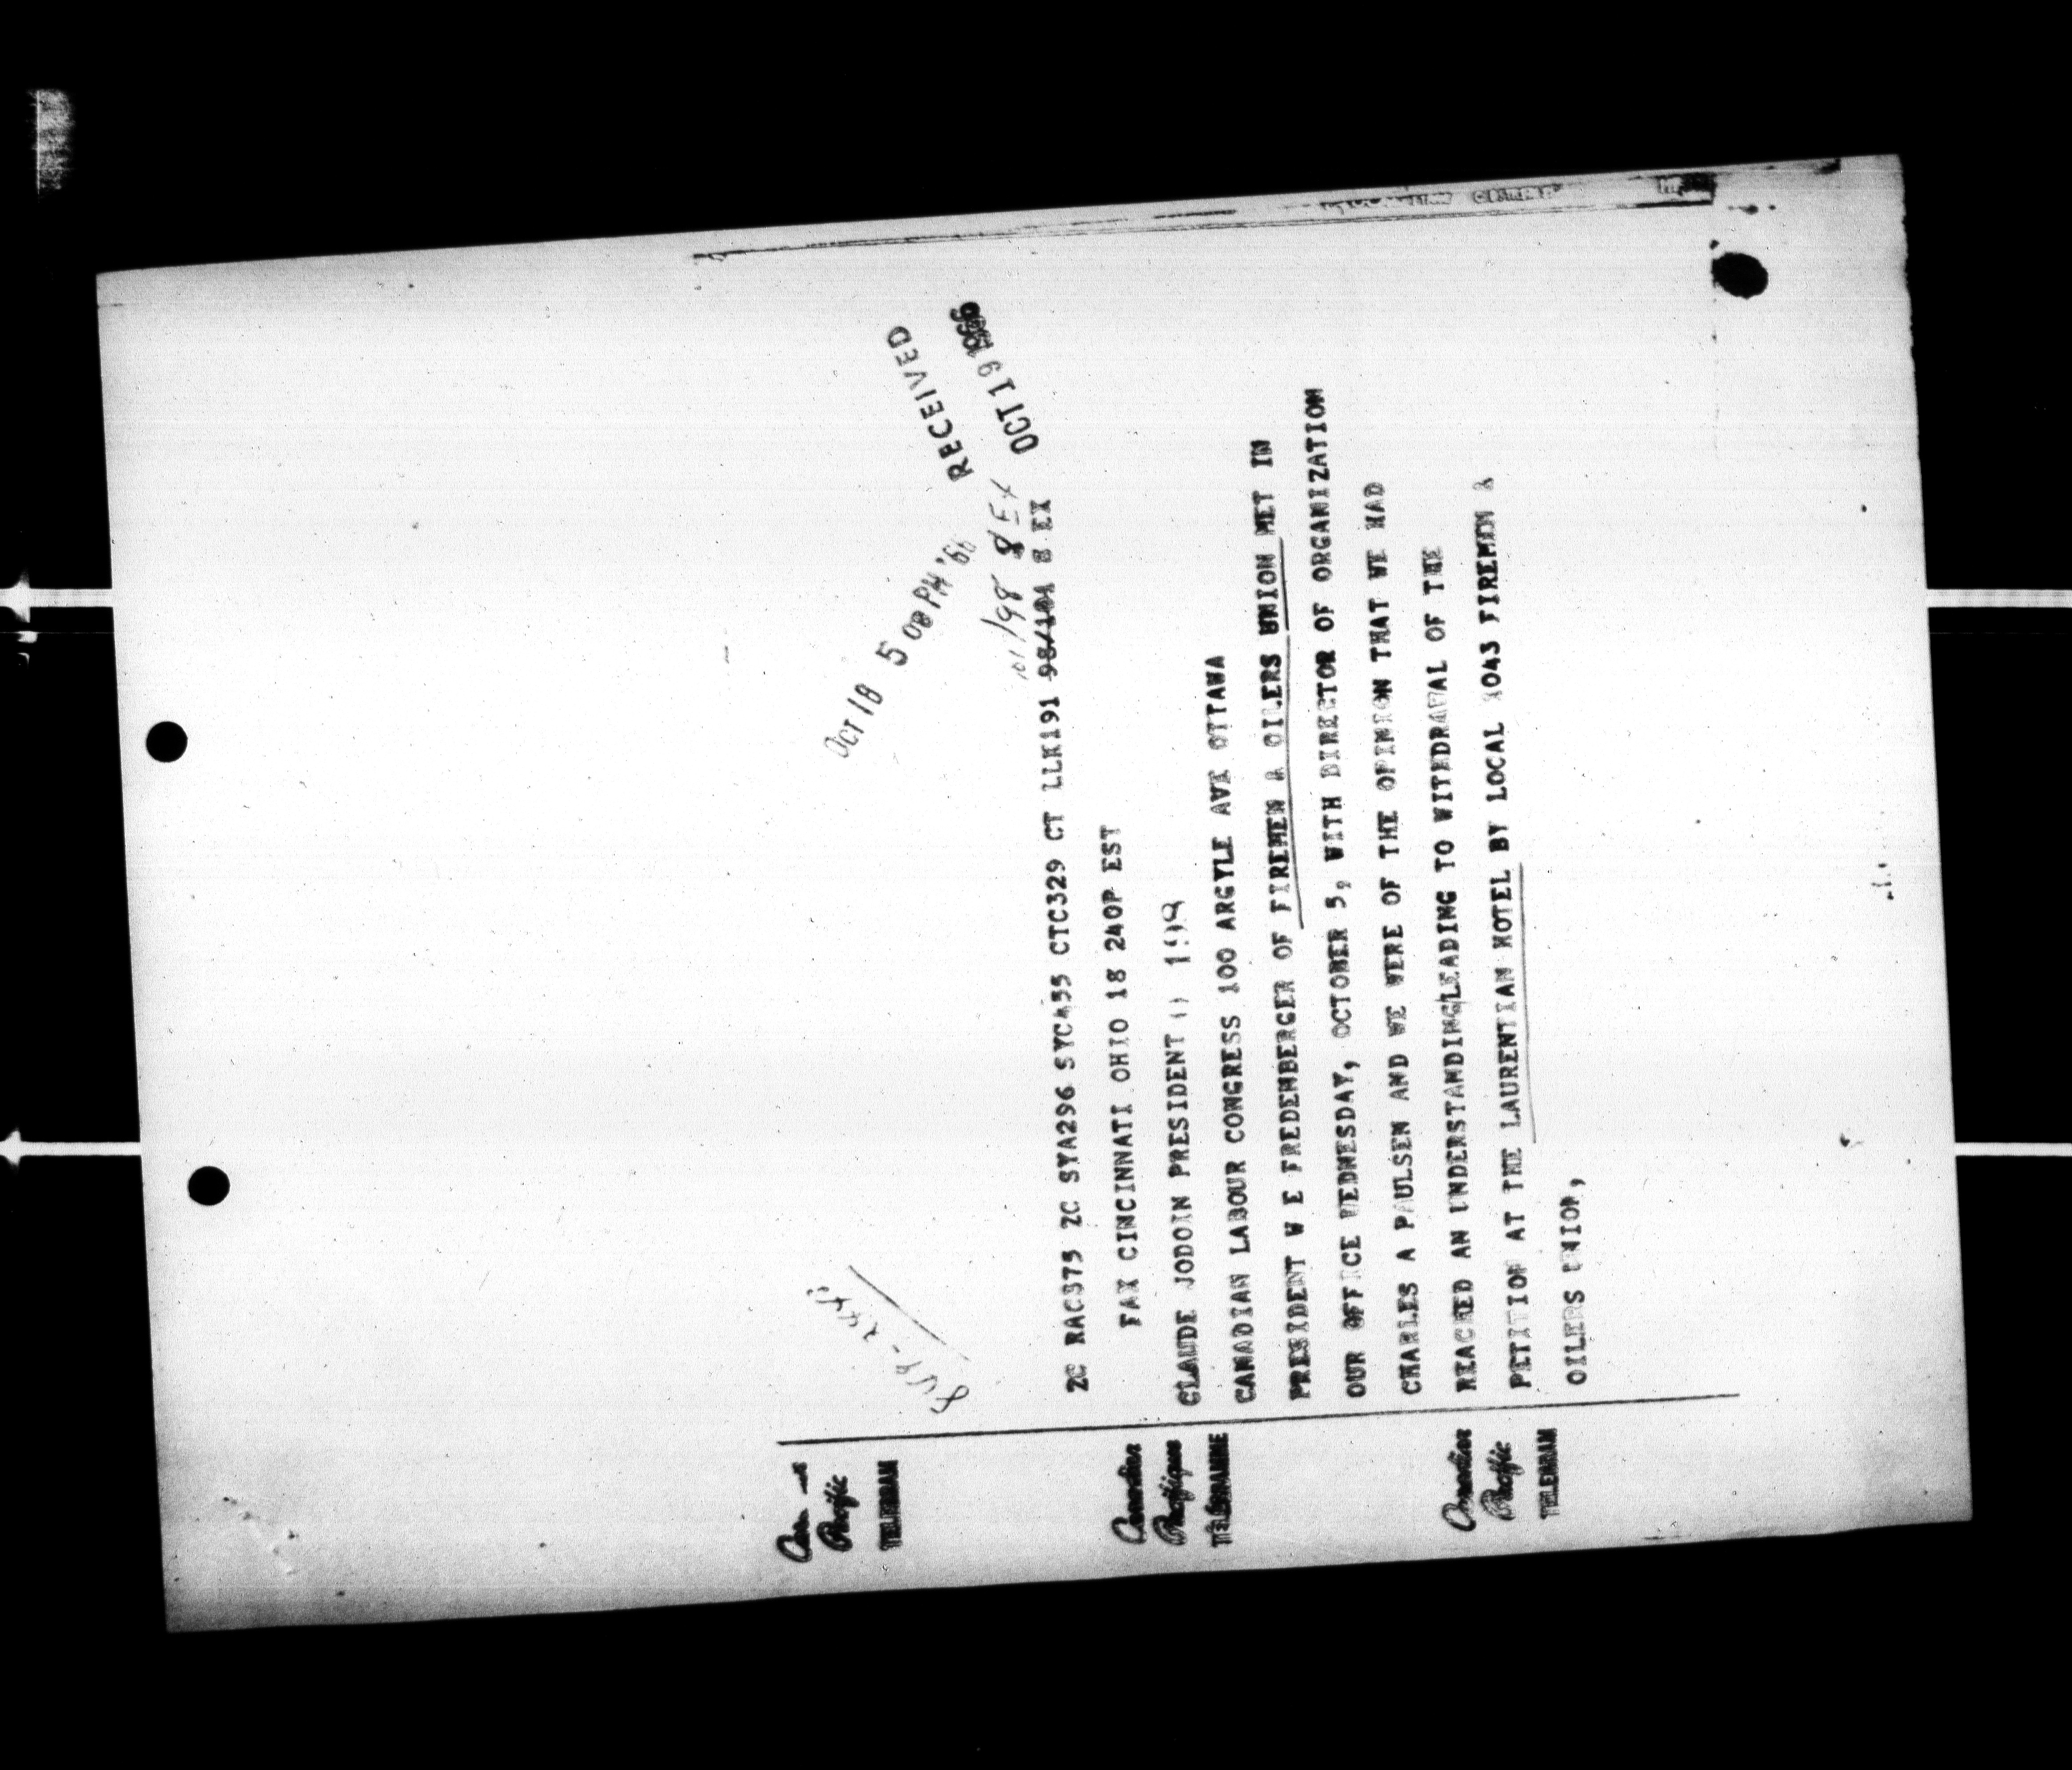 OCT 18 5 08 PM '66
RECEIVED
OCT 19 1966
101/98 8 EX
ZC RAC375 ZC SYA296 SYC455 CTC329 CT LLK191 98/101 8 EX
FAX CINCINNATI OHIO 18 240P EST
CLAUDE JODOIN PRESIDENT
CANADIAN LABOUR CONGRESS 100 ARGYLE AVE OTTAWA
PRESIDENT W E FREDENBERGER OF FIREMEN & OILERS UNION MET IN
OUR OFFICE WEDNESDAY, OCTOBER 5, WITH DIRECTOR OF ORGANIZATION
CHARLES A PAULSEN AND WE WERE OF THE OPINION THAT WE HAD
REACHED AN UNDERSTANDING/LEADING TO WITHDRAWAL OF THE
PETITION AT THE LAURENTIAN HOTEL BY LOCAL 1043 FIREMEN &
OILERS UNION,
Pacific
TELEGRAM
Canadien
Pacifique
TÉLÉGRAMME
Canadian
Pacific
TELEGRAM